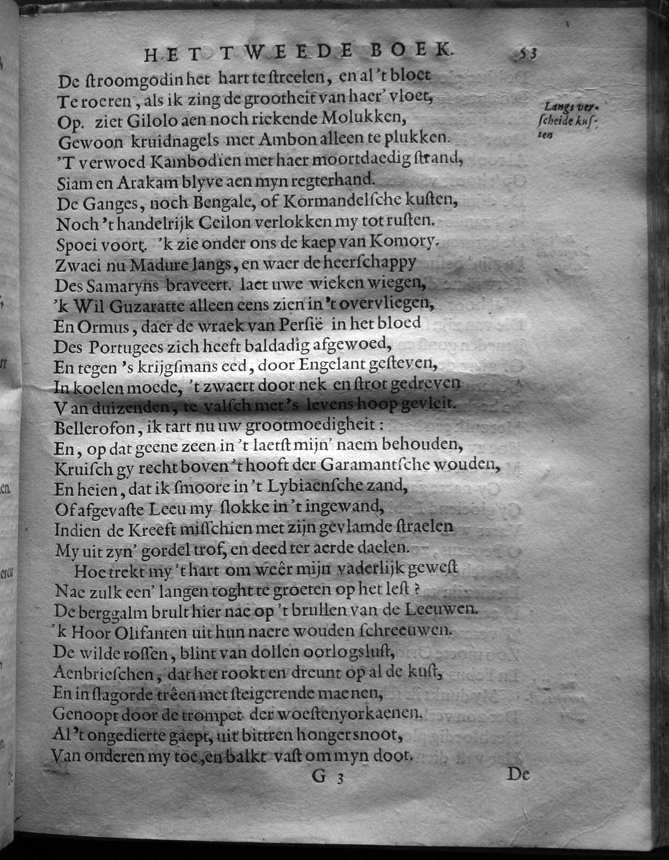 HET TWEEDE BOEK. 53
De ſtroomgodin het hart te ſtreelen, en al 't bloet
Te roeren, als ik zing de grootheit van haer' vloet,
Op. ziet Gilolo aen noch riekende Molukken,
Gewoon kruidnagels met Ambon alleen te plukken.
'T verwoed Kambodïen met haer moortdaedig ſtrand,
Siam en Arakam blyve aen myn regterhand.
De Ganges, noch Bengale, of Kormandelſche kuſten,
Noch 't handelrijk Ceilon verlokken my tot ruſten.
Spoei voort. 'k zie onder ons de kaep van Komory.
Zwaei nu Madure langs, en waer de heerſchappy
Des Samaryns braveert. laet uwe wieken wiegen,
'k Wil Guzaratte alleen eens zien in 't overvliegen,
En Ormus, daer de wraek van Perſië in het bloed
Des Portugees zich heeft baldadig afgewoed,
En tegen 's krijgſmans eed, door Engelant geſteven,
In koelen moede, 't zwaert door nek en ſtrot gedreven
Van duizenden, te valſch met 's levens hoop gevleit.
Bellerofon, ik tart nu uw grootmoedigheit:
En, op dat geene zeen in 't laetſt mijn' naem behouden,
Kruiſch gy recht boven 't hooft der Garamantſche wouden,
En heien, dat ik ſmoore in 't Lybiaenſche zand,
Of afgevaſte Leeu my ſlokke in 't ingewand,
Indien de Kreeft miſſchien met zijn gevlamde ſtraelen
My uit zyn' gordel trof, en deed ter aerde daelen.
Hoe trekt my 't hart om weêr mijn vaderlijk geweſt
Nae zulk een' langen toght te groeten op het leſt?
De berggalm brult hier nae op 't brullen van de Leeuwen.
'k Hoor Olifanten uit hun naere wouden ſchreeuwen.
De wilde roſſen, blint van dollen oorlogsluſt,
Aenbrieſchen, dat het rookt en dreunt op al de kuſt,
En in ſlagorde trêen met ſteigerende maenen,
Genoopt door de trompet der woeſtenyorkaenen.
Al 't ongedierte gaept, uit bittren hongersnoot,
Van onderen my toe, en balkt vaſt om myn doot.
G 3 De
Langs ver-
ſcheide kuſ-
ten